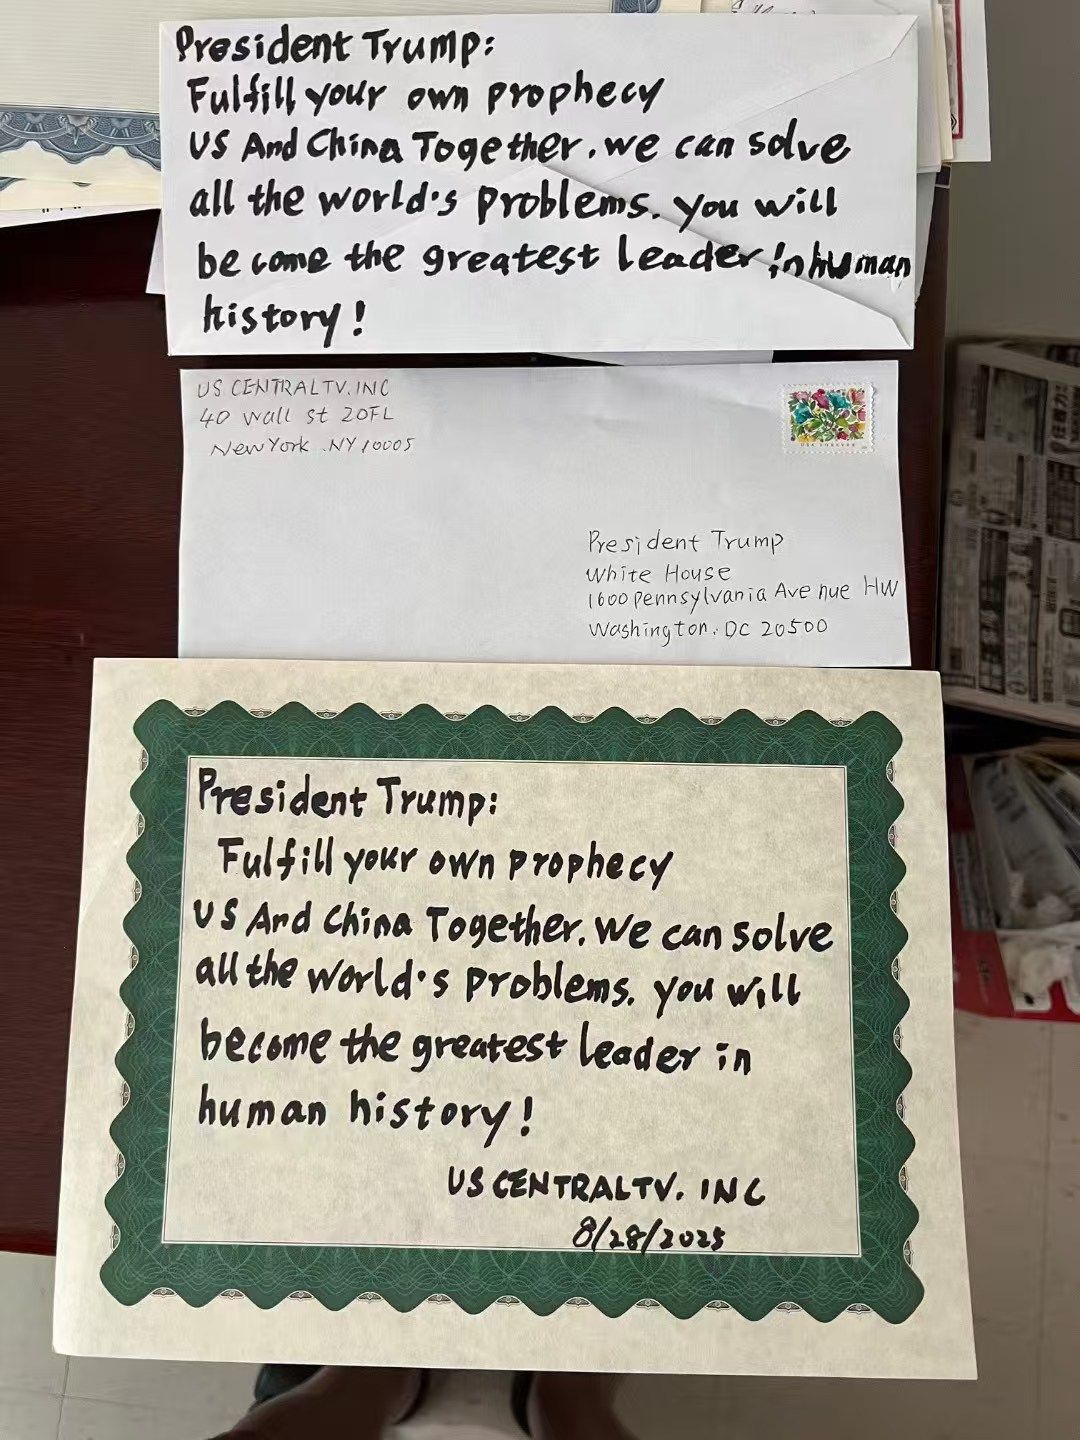 President Trump:
Fulfill your own prophecy
US And China Together. we can solve
all the world's problems. you will
become the greatest leader in human
history!
US CENTRALTV.INC
40 wall st 20FL
New York .NY 10005
President Trump
White House
1600 pennsylvania Avenue HW
Washington. DC 20500
President Trump:
Fulfill your own prophecy
US And China Together. We can solve
all the world's problems. you will
become the greatest leader in
human history!
US CENTRALTV. INC
8/28/2025